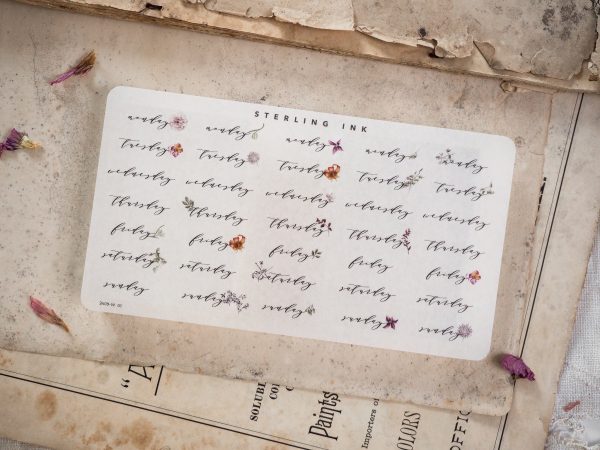 STERLING INK
monday monday monday monday monday
tuesday tuesday tuesday tuesday tuesday
wednesday wednesday wednesday wednesday wednesday
thursday thursday thursday thursday thursday
friday friday friday friday friday
saturday saturday saturday saturday saturday
sunday sunday sunday sunday sunday
"A
SOLUBL
CO
Paints
Importers o
COLORS
OFFIC